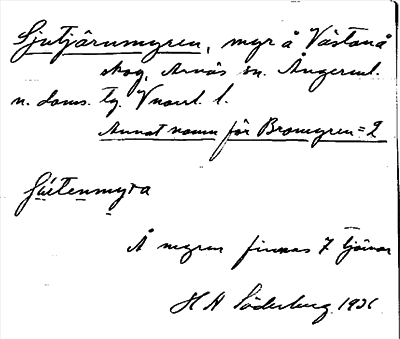 Sjutjärnmyren, myr å Västanå
skog, Arnäs sn. Ångerml.
n. doms. tg. Vnorrl. l.
Annat namn för Bromyren = 2
Å myren finnas 7 tjärnar
H H Söderberg 1931